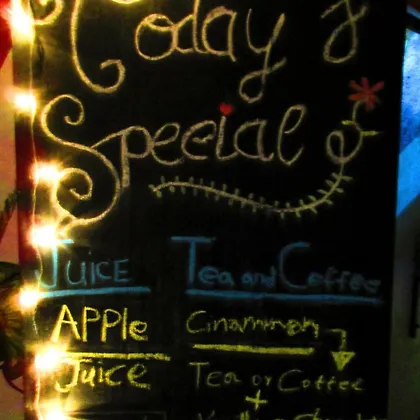 Today's
Special
Juice
Tea and Coffee
Apple
Juice
Cinammon
Tea or Coffee
+